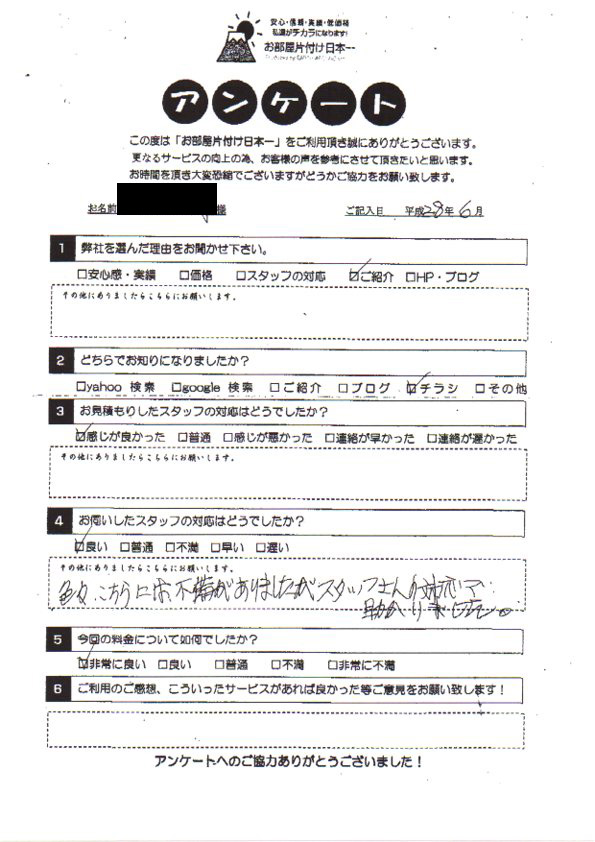 安心・信頼・実績・低価格
私達がチカラになります!
お部屋片付け日本一
アンケート
この度は「お部屋片付け日本一」をご利用頂き誠にありがとうございます。
更なるサービスの向上の為、お客様の声を参考にさせて頂きたいと思います。
お時間を頂き大変恐縮でございますがどうかご協力をお願い致します。
お名前 様 ご記入日 平成28年6月
1 弊社を選んだ理由をお聞かせ下さい。
□安心感・実績 □価格 □スタッフの対応 ☑ご紹介 □HP・ブログ
その他にありましたらこちらにお願いします。
2 どちらでお知りになりましたか?
□yahoo 検索 □google 検索 □ご紹介 □ブログ ☑チラシ □その他
3 お見積もりしたスタッフの対応はどうでしたか?
☑感じが良かった □普通 □感じが悪かった □連絡が早かった □連絡が遅かった
その他にありましたらこちらにお願いします。
4 お伺いしたスタッフの対応はどうでしたか?
☑良い □普通 □不満 □早い □遅い
その他にありましたらこちらにお願いします。
色々こちらには不備がありましたがスタッフさんの対応で
助かりました。
5 今回の料金について如何でしたか?
☑非常に良い □良い □普通 □不満 □非常に不満
6 ご利用のご感想、こういったサービスがあれば良かった等ご意見をお願い致します!
アンケートへのご協力ありがとうございました!